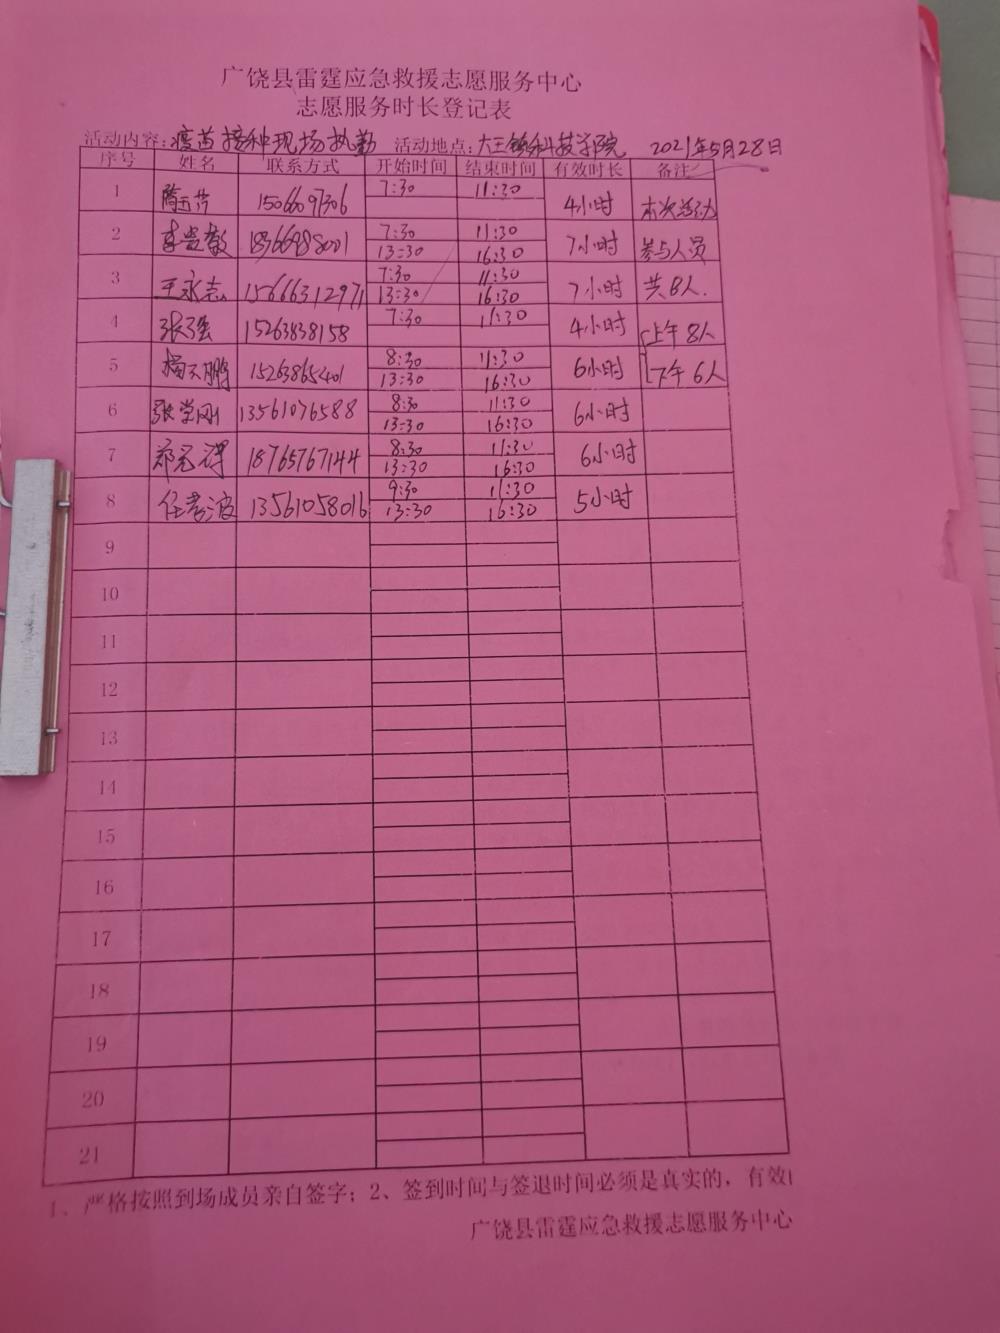 广饶县雷霆应急救援志愿服务中心
志愿服务时长登记表
活动内容:疫苗接种现场执勤 活动地点:大王镇科技学院 2021年5月28日
序号 姓名 联系方式 开始时间 结束时间 有效时长 备注
1 15066097306 7:30 11:30 4小时 本次活动
2 18766988001 7:30 11:30 7小时 参与人员
13:30 16:30
3 王永志 15666312971 7:30 11:30 7小时 共8人.
13:30 16:30
4 张强 15263838158 7:30 11:30 4小时 上午8人
5 杨天鹏 15263865401 8:30 11:30 6小时 下午6人
13:30 16:30
6 张学刚 13561076588 8:30 11:30 6小时
13:30 16:30
7 18765767144 8:30 11:30 6小时
13:30 16:30
8 任孝波 13561058016 9:30 11:30 5小时
13:30 16:30
9
10
11
12
13
14
15
16
17
18
19
20
21
1、严格按照到场成员亲自签字；2、签到时间与签退时间必须是真实的，有效
广饶县雷霆应急救援志愿服务中心